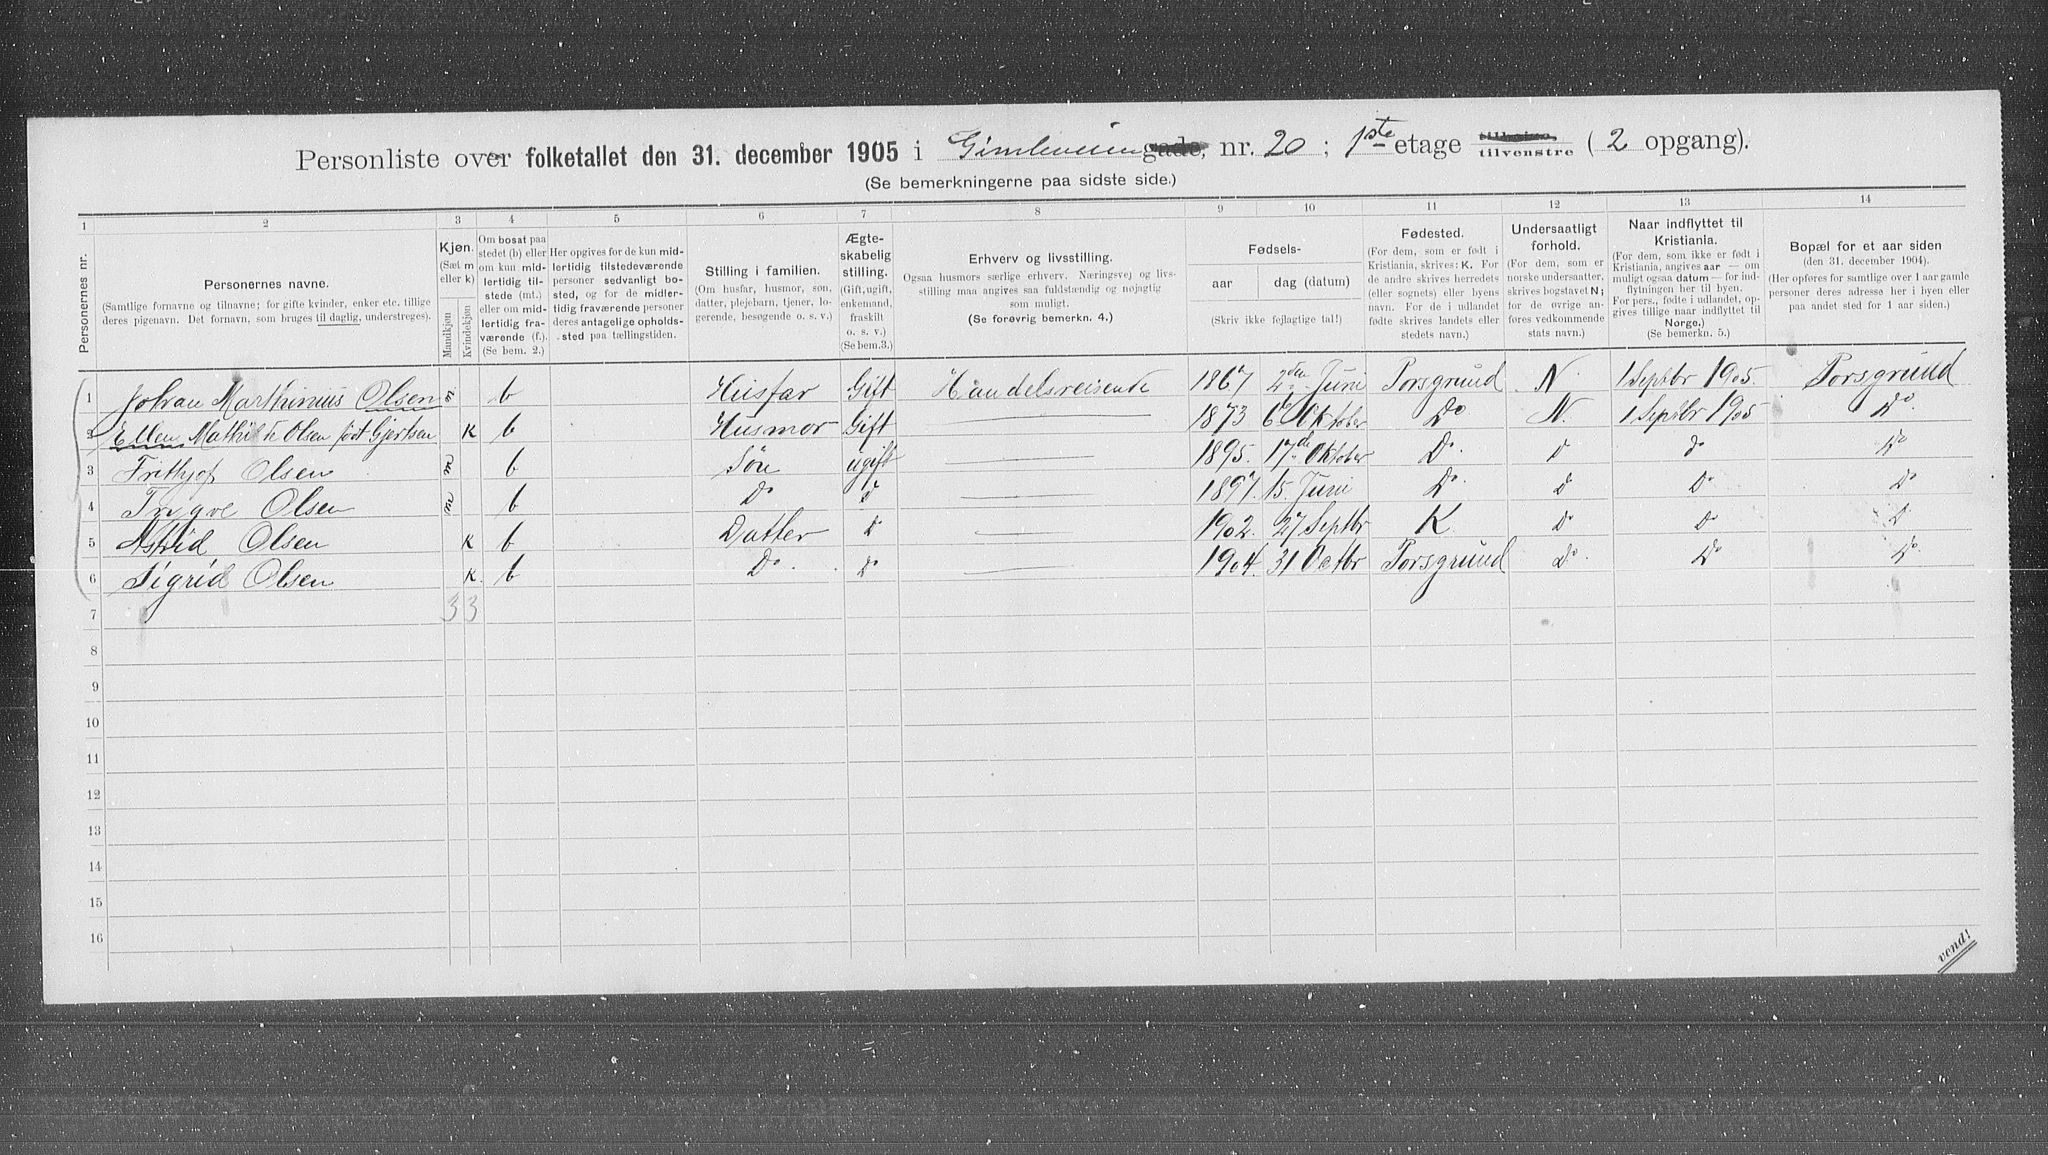 Personliste over folketallet den 31. december 1905 i Gimleveien gade, nr. 20 ; 1ste etage tilhøire tilvenstre ( 2 opgang).
(Se bemerkningerne paa sidste side.)
1 2 3 4 5 6 7 8 9 10 11 12 13 14
Personernes nr.
Personernes navne.
(Samtlige fornavne og tilnavne; for gifte kvinder, enker etc. tillige
deres pigenavn. Det fornavn, som bruges til daglig, understreges).
Kjøn.
(Sæt m
eller k)
Mandkjøn
Kvindekjøn
Om bosat paa
stedet (b) eller
om kun mid-
lertidig til-
stede (mt.)
eller om mid-
lertidig fra-
værende (f.).
(Se bem. 2.)
Her opgives for de kun mid-
lertidig tilstedeværende
personer sedvanligt bo-
sted, og for de midler-
tidig fraværende personer
deres antagelige opholds-
sted paa tællingstiden.
Stilling i familien.
(Om husfar, husmor, søn,
datter, plejebarn, tjener, lo-
gerende, besøgende o. s. v.)
Ægte-
skabelig
stilling.
(Gift, ugift,
enkemand,
fraskilt
o. s. v.)
(Se bem.3.)
Erhverv og livsstilling.
Ogsaa husmors særlige erhverv. Næringsvej og livs-
stilling maa angives saa fuldstændig og nøjagtig
som muligt.
(Se forøvrig bemerkn. 4.)
Fødsels-
aar dag (datum)
(Skriv ikke fejlagtige tal!)
Fødested.
(For dem, som er født i
Kristiania, skrives: K. For
de andre skrives herredets
(eller sognets) eller byens
navn. For de i udlandet
fødte skrives landets eller
stedets navn.)
Undersaatligt
forhold.
(For dem, som er
norske undersaatter,
skrives bogstavet N;
for de øvrige an-
føres vedkommende
stats navn.)
Naar indflyttet til
Kristiania.
(For dem, som ikke er født i
Kristiania, angives aar — om
muligt ogsaa datum — for ind-
flytningen her til byen.
For pers., fødte i udlandet, op-
gives tillige naar indflyttet til
Norge.)
(Se bemerkn. 5.)
Bopæl for et aar siden
(den 31. december 1904).
(Her opføres for samtlige over 1 aar gamle
personer deres adresse her i byen eller
paa andet sted for 1 aar siden.)
1 Johan Marthinius Olsen m b Husfar Gift Handelsreisende 1867 2den Juni Porsgrund N. 1 Septbr 1905. Porsgrund
2 Ellen Mathilde Olsen født Gjertsen K b Husmor Gift 1873 6te Oktober Do N. 1 Septbr 1905 Do.
3 Frithjof Olsen m b Søn ugift 1895. 17de Oktober Do. Do Do Do
4 Trygve Olsen m b Do Do 1897. 15. Juni Do Do Do Do
5 Astrid Olsen K b Datter Do 1902. 27 Septbr K. Do Do Do
6 Sigrid Olsen K. b Do. Do 1904. 31 Octbr Porsgrund Do. Do Do.
7 3 3
8
9
10
11
12
13
14
15
16
vend!